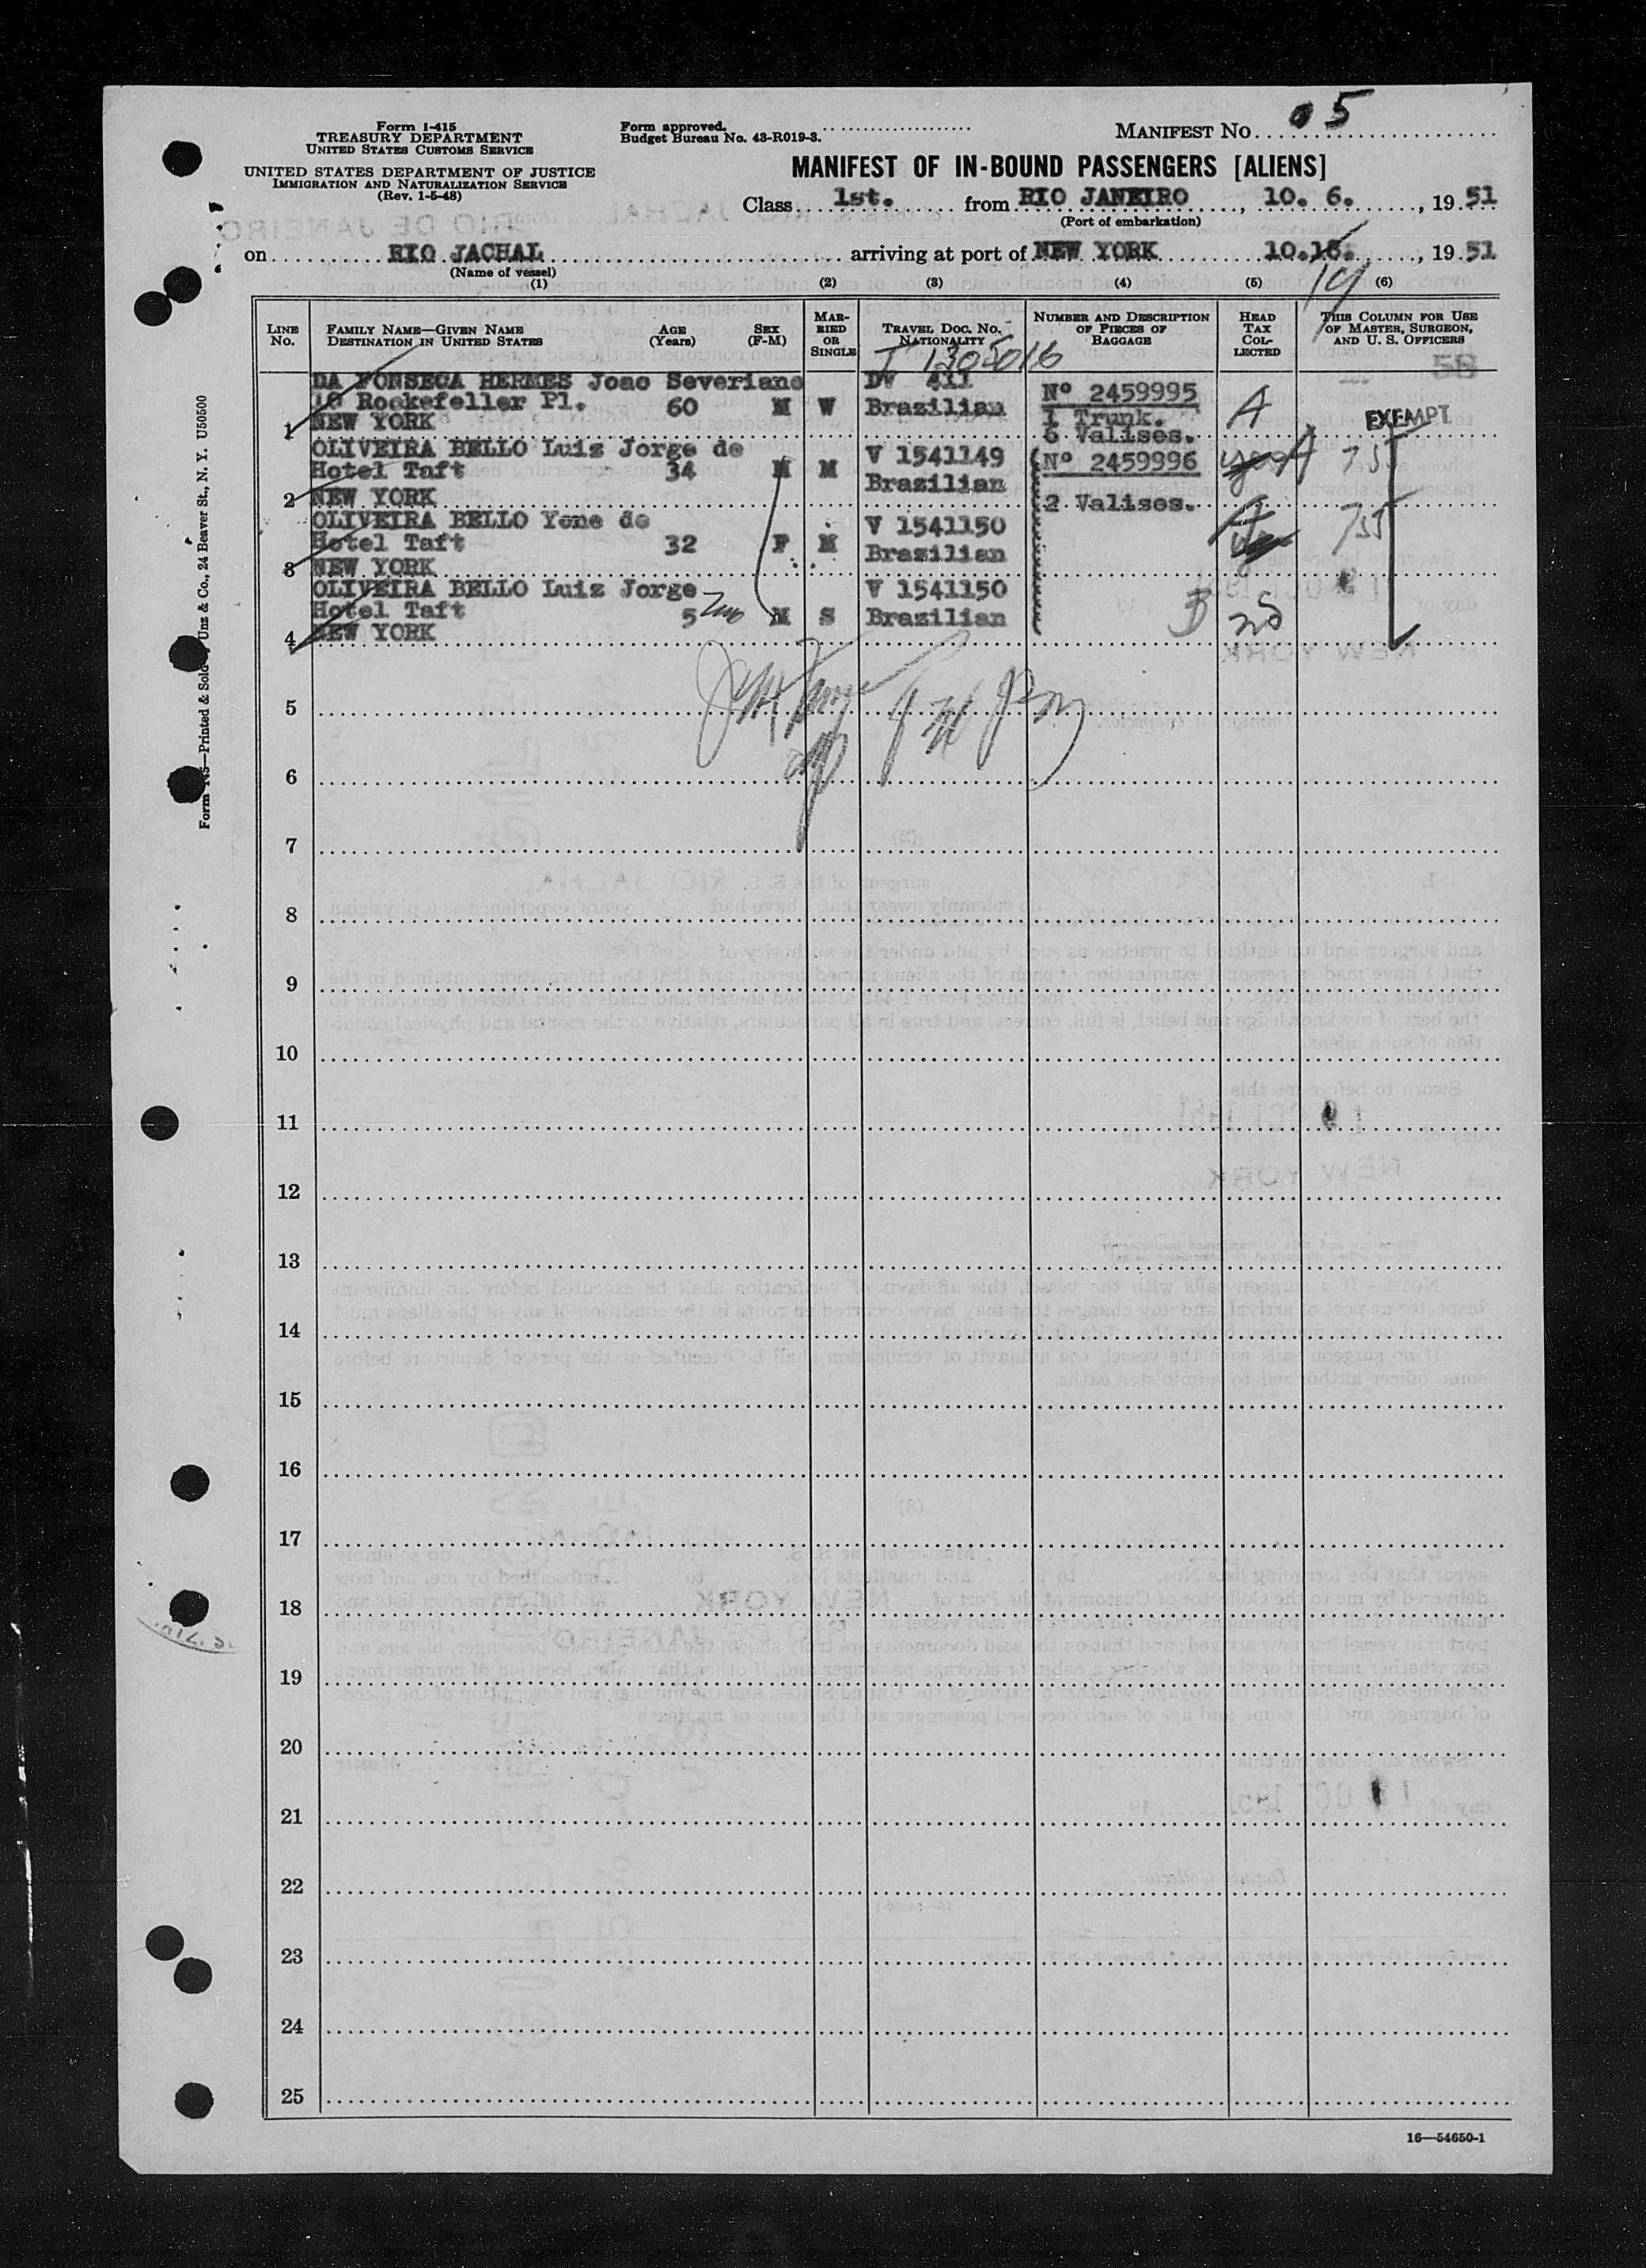 Form I-415
TREASURY DEPARTMENT
UNITED STATES CUSTOMS SERVICE
UNITED STATES DEPARTMENT OF JUSTICE
IMMIGRATION AND NATURALIZATION SERVICE
(Rev. 1-5-48)
Form approved.
Budget Bureau No. 43-R019-3.
MANIFEST NO. 5
MANIFEST OF IN-BOUND PASSENGERS [ALIENS]
Class 1st. from RIO JANEIRO, 10. 6., 19 51
(Port of embarkation)
on RIO JACHAL arriving at port of NEW YORK 10.15., 19 51
(Name of vessel)
14
(1) (2) (3) (4) (5) (6)
LINE NO.
FAMILY NAME—GIVEN NAME
DESTINATION IN UNITED STATES
AGE (Years)
SEX (F-M)
MARRIED OR SINGLE
TRAVEL DOC. NO. NATIONALITY
NUMBER AND DESCRIPTION OF PIECES OF BAGGAGE
HEAD TAX COLLECTED
THIS COLUMN FOR USE OF MASTER, SURGEON, AND U. S. OFFICERS
1305016
DA FONSECA HERMES Joao Severiano DV 411 Nº 2459995
10 Rockefeller Pl. 60 M W Brazilian 1 Trunk. A EXEMPT
1 NEW YORK 6 Valises.
OLIVEIRA BELLO Luiz Jorge de V 1541149 Nº 2459996
Hotel Taft 34 M M Brazilian
2 NEW YORK 2 Valises.
OLIVEIRA BELLO Yone de V 1541150
Hotel Taft 32 F M Brazilian
3 NEW YORK
OLIVEIRA BELLO Luiz Jorge V 1541150
Hotel Taft 5 M S Brazilian
4 NEW YORK
5
6
7
8
9
10
11
12
13
14
15
16
17
18
19
20
21
22
23
24
25
16—54650-1
Unz & Co., 24 Beaver St., N. Y. U50500